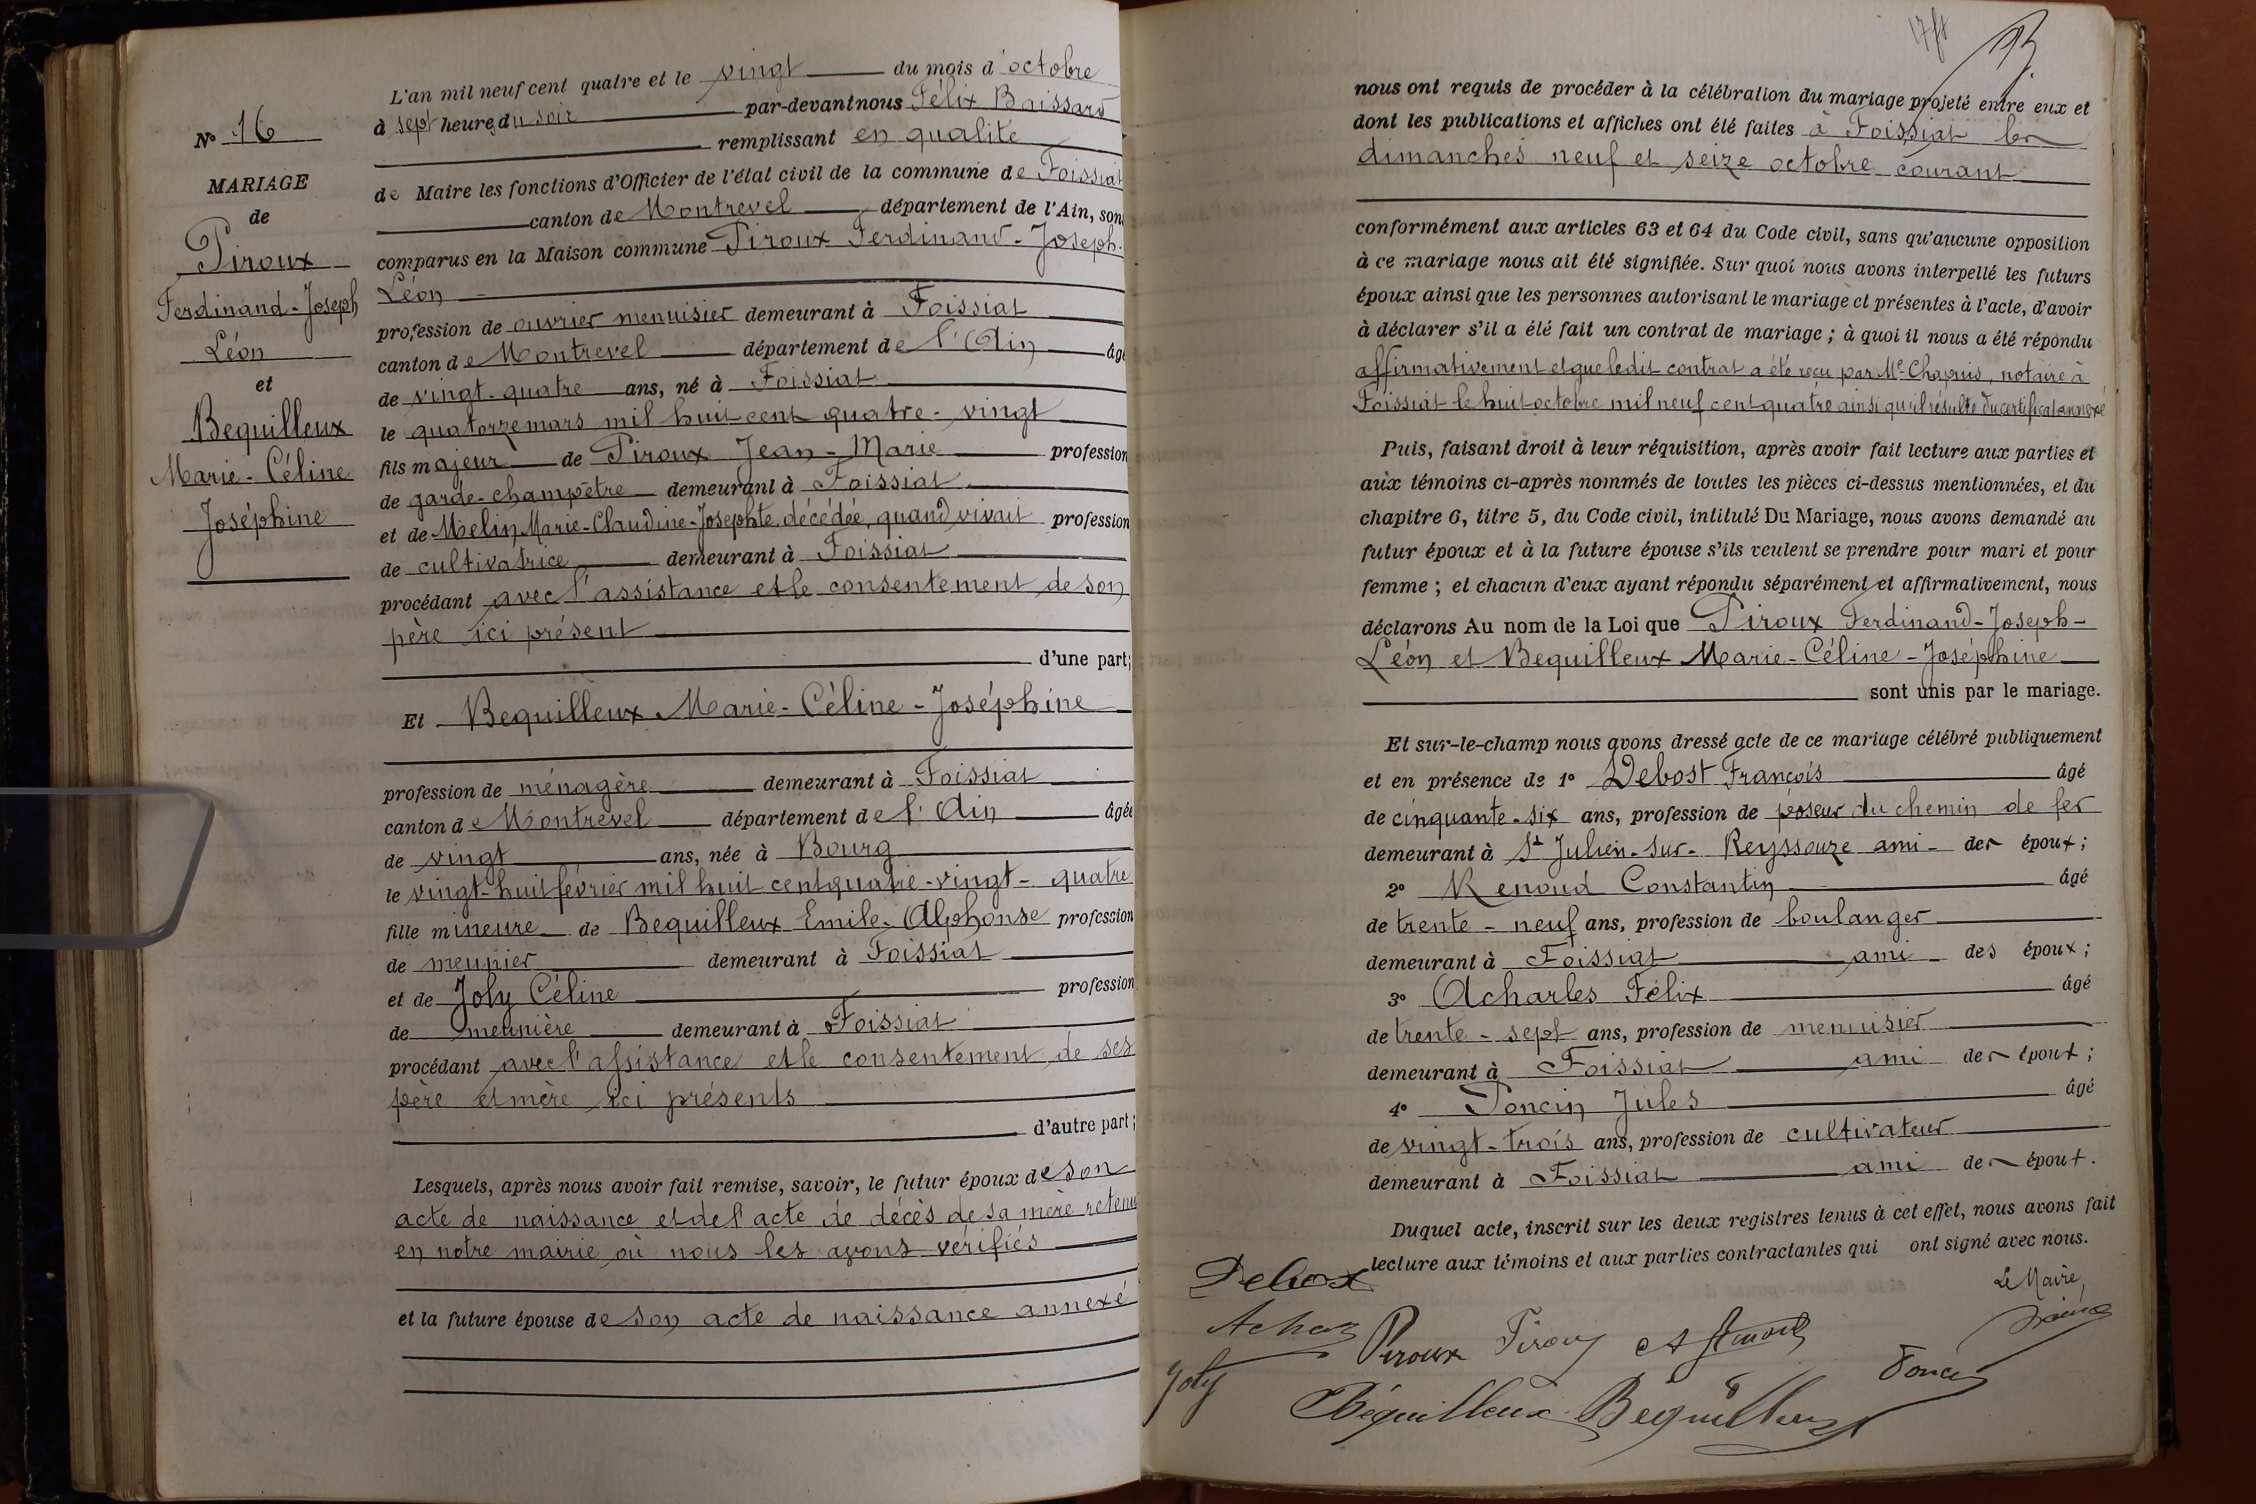 N° 16
MARIAGE
de
Piroux
Ferdinand-Joseph
Léon
et
Bequilleux
Marie-Céline
Joséphine
L'an mil neuf cent quatre et le vingt du mois d'octobre
à sept heures du soir par-devant nous Félix Baissard
remplissant en qualité
de Maire les fonctions d'Officier de l'état civil de la commune de Foissiat
canton de Montrevel département de l'Ain, sont
comparus en la Maison commune Piroux Ferdinand-Joseph-
Léon
profession de ouvrier menuisier demeurant à Foissiat
canton de Montrevel département de l'Ain âgé
de vingt-quatre ans, né à Foissiat
le quatorze mars mil huit cent quatre-vingt
fils majeur de Piroux Jean-Marie profession
de garde-champêtre demeurant à Foissiat
et de Melin Marie-Claudine-Josephte, décédée, quand vivait profession
de cultivatrice demeurant à Foissiat
procédant avec l'assistance et le consentement de son
père ici présent
d'une part;
Et Bequilleux Marie-Céline-Joséphine
profession de ménagère demeurant à Foissiat
canton de Montrevel département de l'Ain âgée
de vingt ans, née à Bourg
le vingt-huit février mil huit cent quatre-vingt-quatre
fille mineure de Bequilleux Emile-Alphonse profession
de meunier demeurant à Foissiat
et de Joly Céline profession
de meunière demeurant à Foissiat
procédant avec l'assistance et le consentement de ses
père et mère ici présents
d'autre part;
Lesquels, après nous avoir fait remise, savoir, le futur époux de son
acte de naissance et de l'acte de décès de sa mère retenu
en notre mairie où nous les avons vérifiés
et la future épouse de son acte de naissance annexé
nous ont requis de procéder à la célébration du mariage projeté entre eux et
dont les publications et affiches ont été faites à Foissiat les
dimanches neuf et seize octobre courant
conformément aux articles 63 et 64 du Code civil, sans qu'aucune opposition
à ce mariage nous ait été signifiée. Sur quoi nous avons interpellé les futurs
époux ainsi que les personnes autorisant le mariage et présentes à l'acte, d'avoir
à déclarer s'il a été fait un contrat de mariage ; à quoi il nous a été répondu
affirmativement et que ledit contrat a été reçu par Me Chapuis, notaire à
Foissiat le huit octobre mil neuf cent quatre ainsi qu'il résulte du certificat annexé
Puis, faisant droit à leur réquisition, après avoir fait lecture aux parties et
aux témoins ci-après nommés de toutes les pièces ci-dessus mentionnées, et du
chapitre 6, titre 5, du Code civil, intitulé Du Mariage, nous avons demandé au
futur époux et à la future épouse s'ils veulent se prendre pour mari et pour
femme ; et chacun d'eux ayant répondu séparément et affirmativement, nous
déclarons Au nom de la Loi que Piroux Ferdinand-Joseph-
Léon et Bequilleux Marie-Céline-Joséphine
sont unis par le mariage.
Et sur-le-champ nous avons dressé acte de ce mariage célébré publiquement
et en présence de 1° Debost François âgé
de cinquante-six ans, profession de poseur du chemin de fer
demeurant à St Julien-sur-Reyssouze ami des époux ;
2° Renoud Constantin âgé
de trente-neuf ans, profession de boulanger
demeurant à Foissiat ami des époux ;
3° Acharles Félix âgé
de trente-sept ans, profession de menuisier
demeurant à Foissiat ami des époux ;
4° Poncin Jules âgé
de vingt-trois ans, profession de cultivateur
demeurant à Foissiat ami des époux.
Duquel acte, inscrit sur les deux registres tenus à cet effet, nous avons fait
lecture aux témoins et aux parties contractantes qui ont signé avec nous.
Le Maire,
Debost
Piroux Piroux
Joly
Poncin
Béquilleux Bequilleux